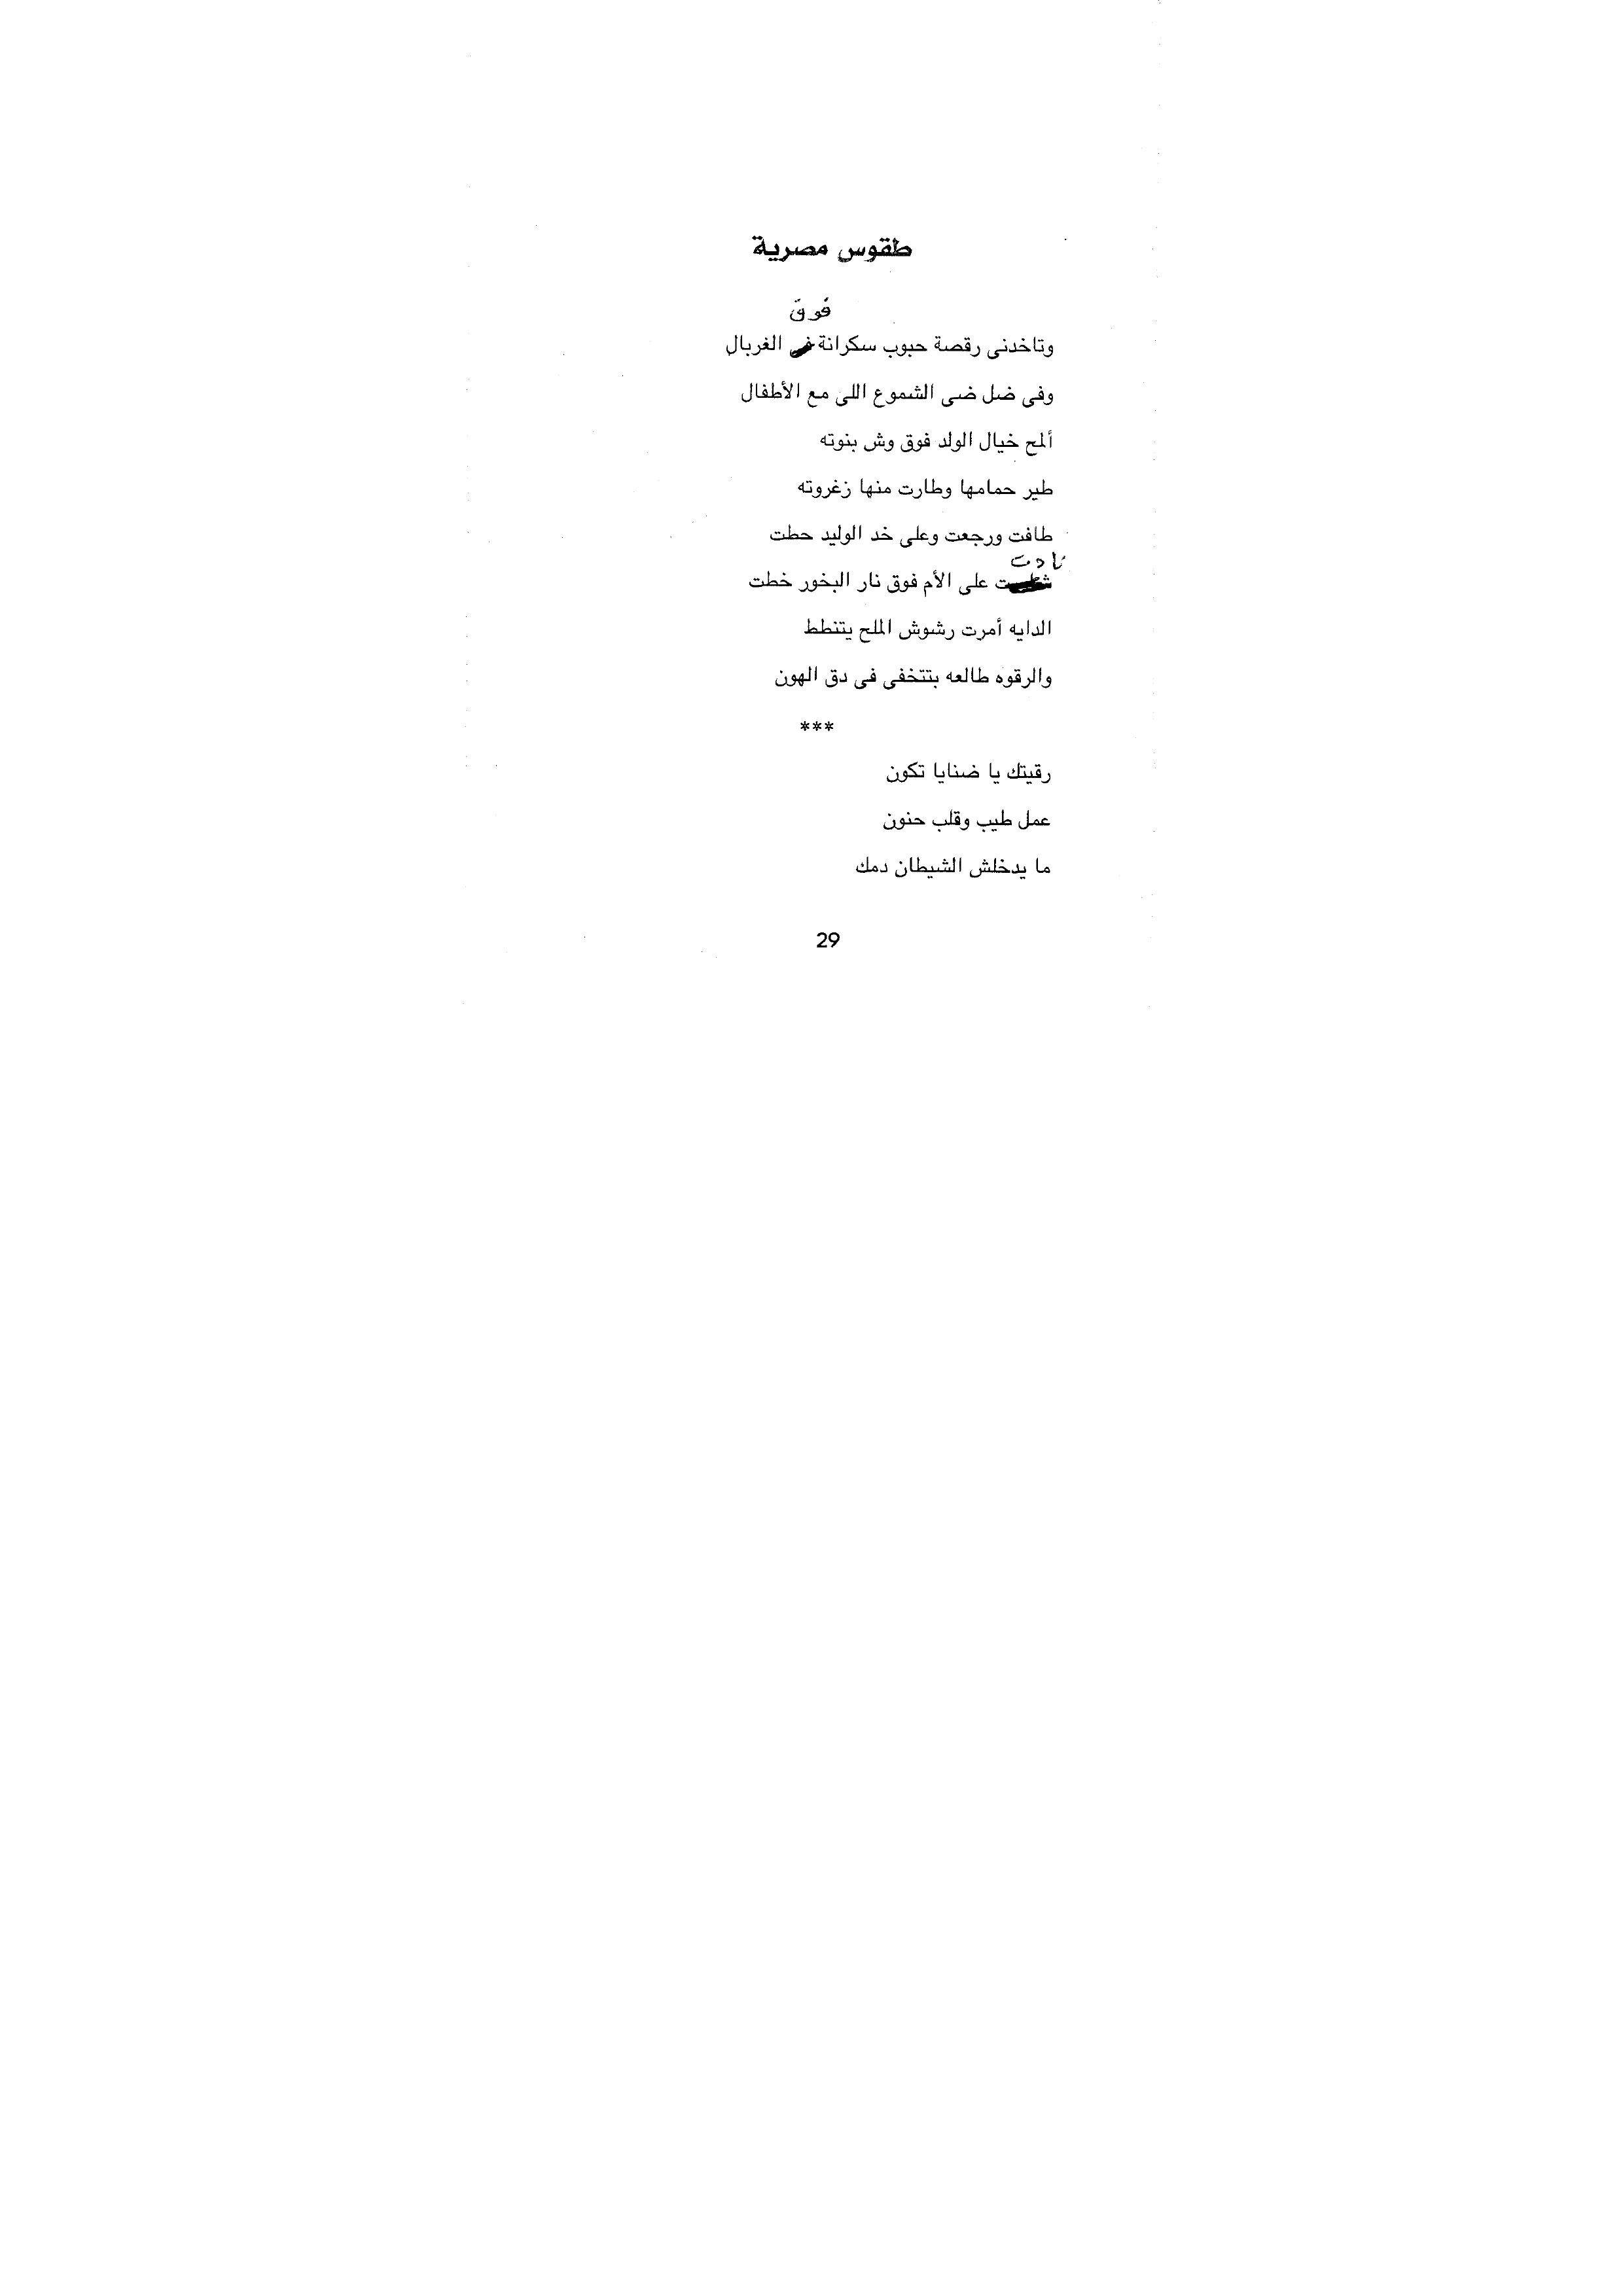 طقوس مصرية
فوق
وتاخدنى رقصة حبوب سكرانة فى الغربال
وفى ضل ضى الشموع اللى مع الأطفال
ألمح خيال الولد فوق وش بنوته
طير حمامها وطارت منها زغروته
طافت ورجعت وعلى خد الوليد حطت
نادت
على الأم فوق نار البخور خطت
الدايه أمرت رشوش الملح يتنطط
والرقوه طالعه بتتخفى فى دق الهون
***
رقيتك يا ضنايا تكون
عمل طيب وقلب حنون
ما يدخلش الشيطان دمك
29